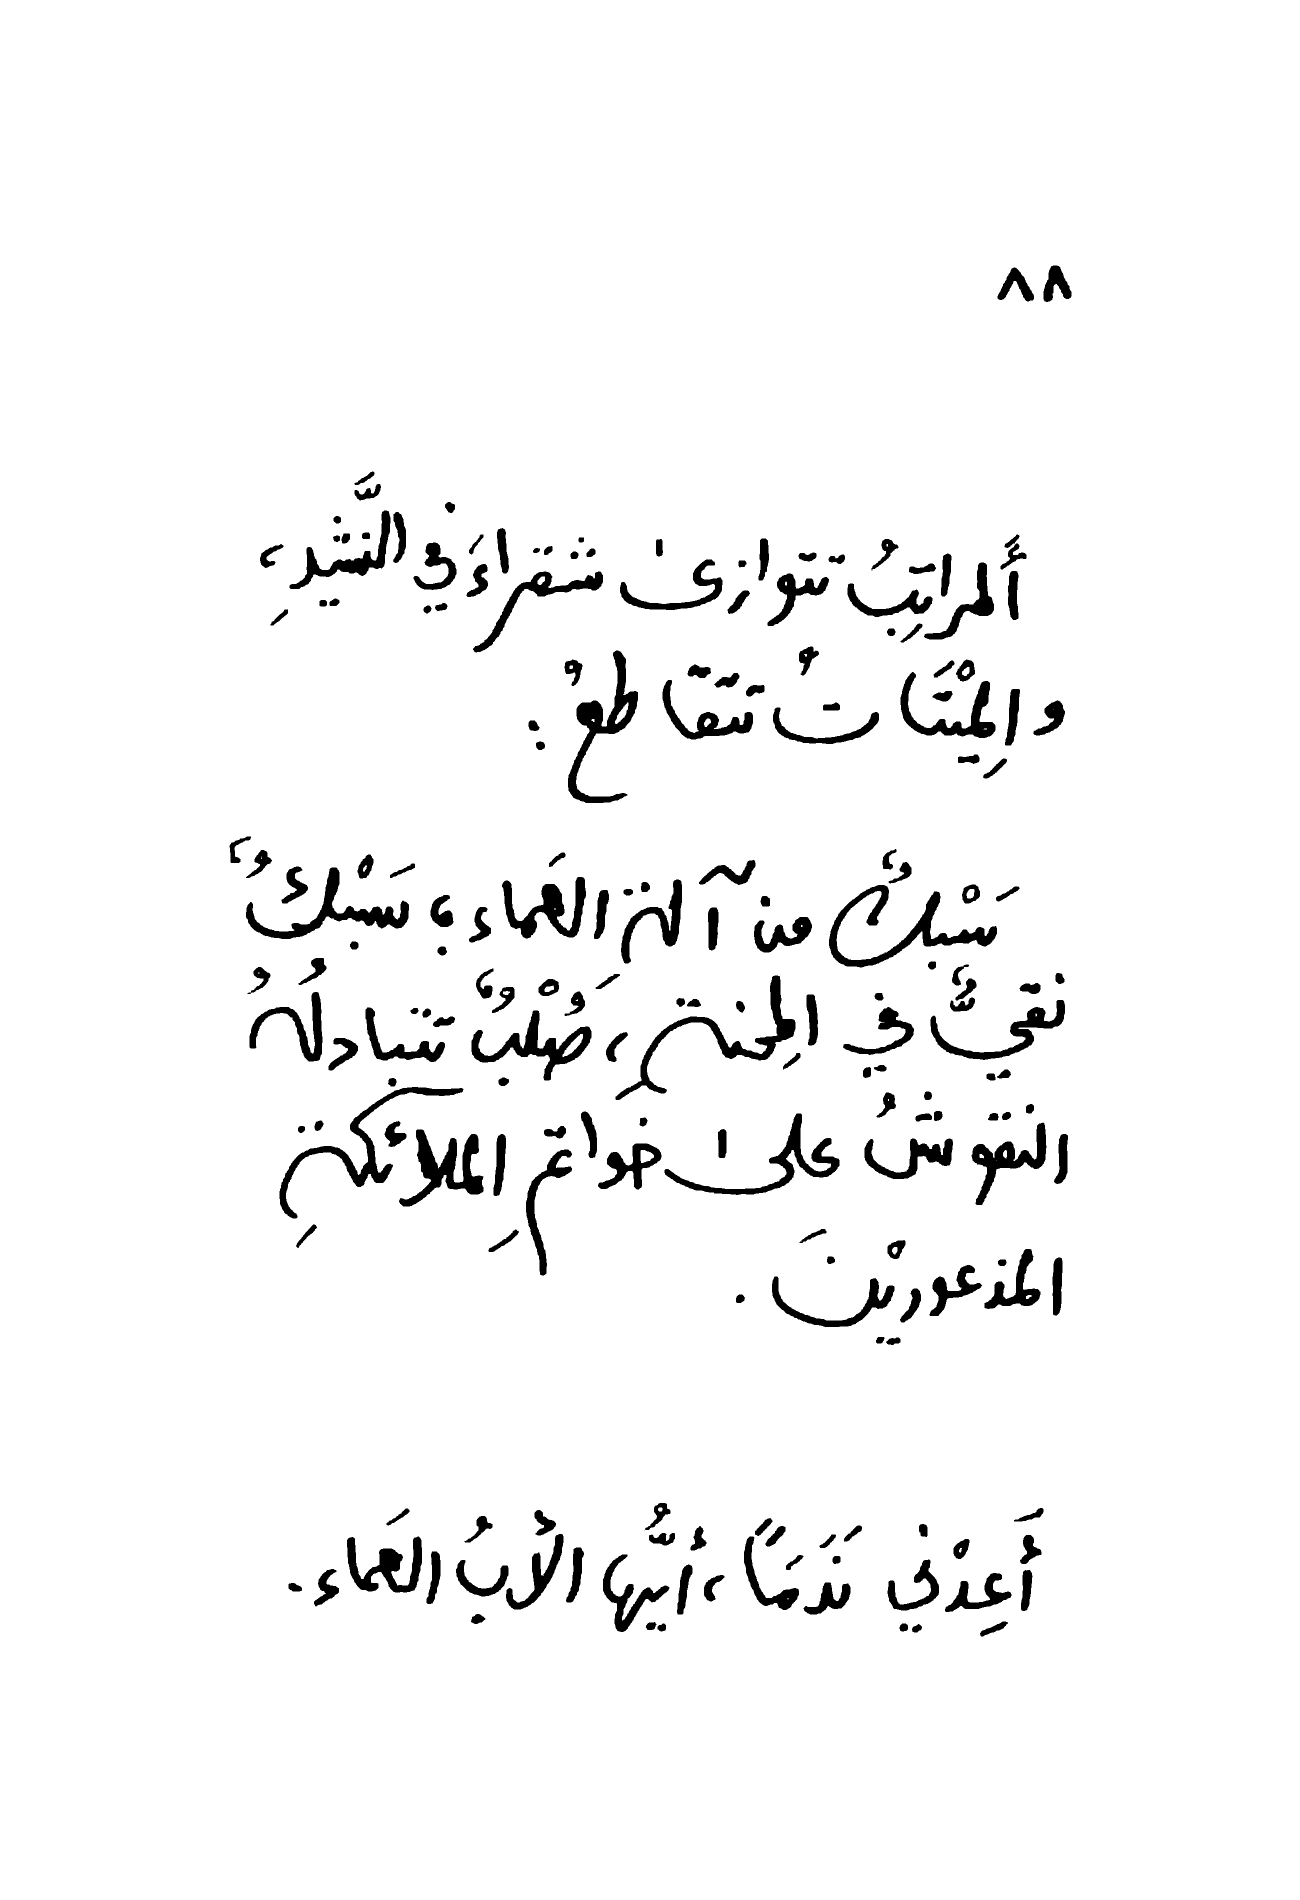 ٨٨
أَلمراتِبُ تتوازىٰ شقراءَ في النَّشيدِ،
والمِيْتَاتُ تتقاطعُ:
سَبْكٌ من آلة العَماء؛ سَبْكٌ
نقيٌّ في المِحنةِ، صُلْبٌ تتبادلُهُ
النقوشُ علىٰ خواتمِ الملائكةِ
المذعورينَ.
أَعِدْني نَدَمَاً، أيُّها الأبُ العَماء.